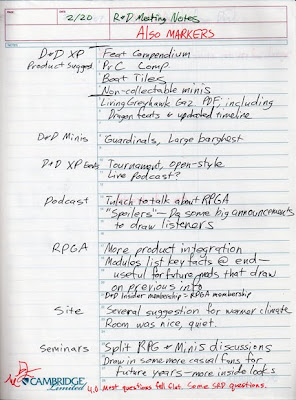 2/20 R&D Meeting Notes
Also MARKERS
D&D XP Feat Compendium
Product Suggest PrC Comp.
Boat Tiles
Non-collectable minis
Living Greyhawk Gaz PDF, including
Dragon feats & updated timeline
D&D Minis Guardinals, Large barghest
D&D XP Events Tournament, open-style
Live podcast?
Podcast to talk about RPGA
"Spoilers" - Do some big announcements
to draw listeners
RPGA More product integration
Modules list key facts @ end—
useful for future mods that draw
on previous info
D&D Insider membership = RPGA membership
Site Several suggestion for warmer climate
Room was nice, quiet.
Seminars Split RPG & Minis discussions
Draw in some more casual fans for
future years—more inside looks
CAMBRIDGE
Limited
4.0 Most questions fell flat. Some SRD questions.